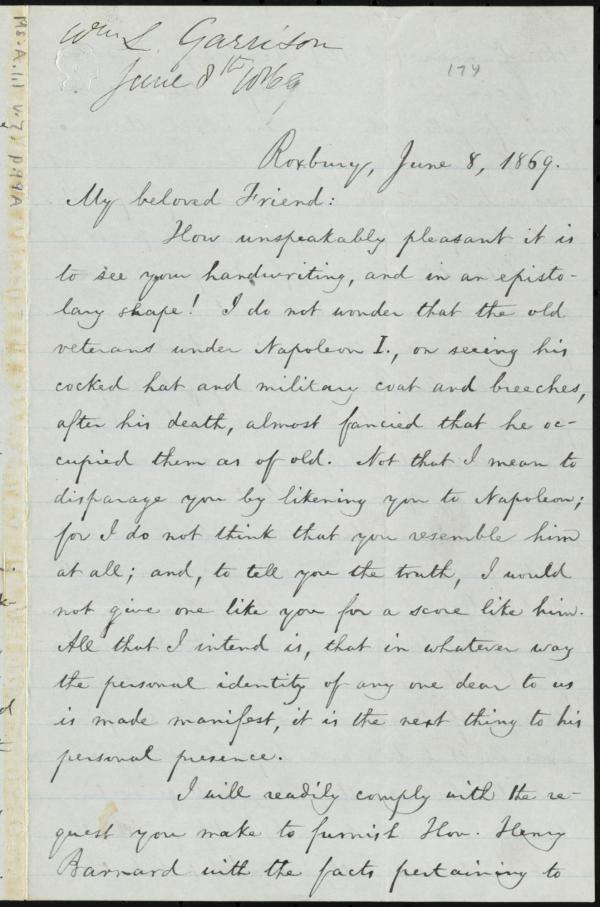 Wm L. Garrison
June 8th 1869
174
Ms. A. 1.1 v. 7, p. 99A
Roxbury, June 8, 1869.
My beloved Friend:
How unspeakably pleasant it is
to see your handwriting, and in an episto-
lary shape! I do not wonder that the old
veterans under Napoleon I., on seeing his
cocked hat and military coat and breeches,
after his death, almost fancied that he oc-
cupied them as of old. Not that I mean to
disparage you by likening you to Napoleon;
for I do not think that you resemble him
at all; and, to tell you the truth, I would
not give one like you for a score like him.
All that I intend is, that in whatever way
the personal identity of any one dear to us
is made manifest, it is the next thing to his
personal presence.
I will readily comply with the re-
quest you make to furnish Hon. Henry
Barnard with the facts pertaining to